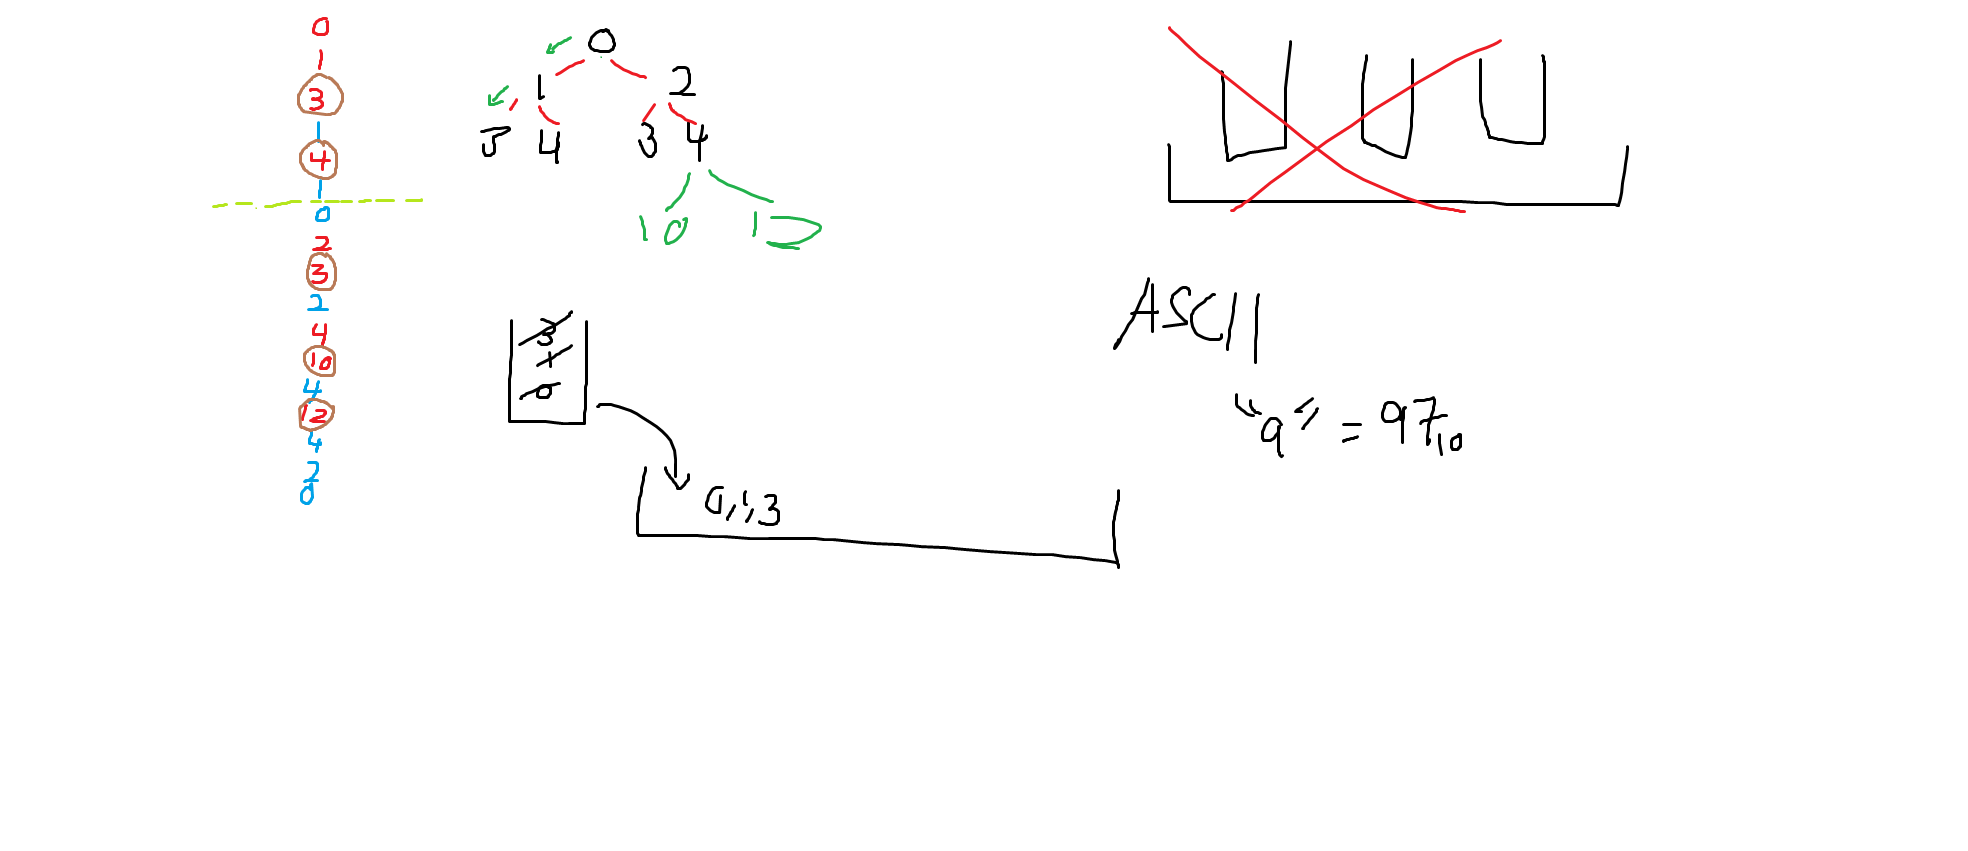 0
1
3
1
4
1
0
2
3
2
4
10
4
12
4
2
0
0
1 2
3 4 3 4
10 12
3
1
0
0,1,3
ASCII
"a" = 97₁₀